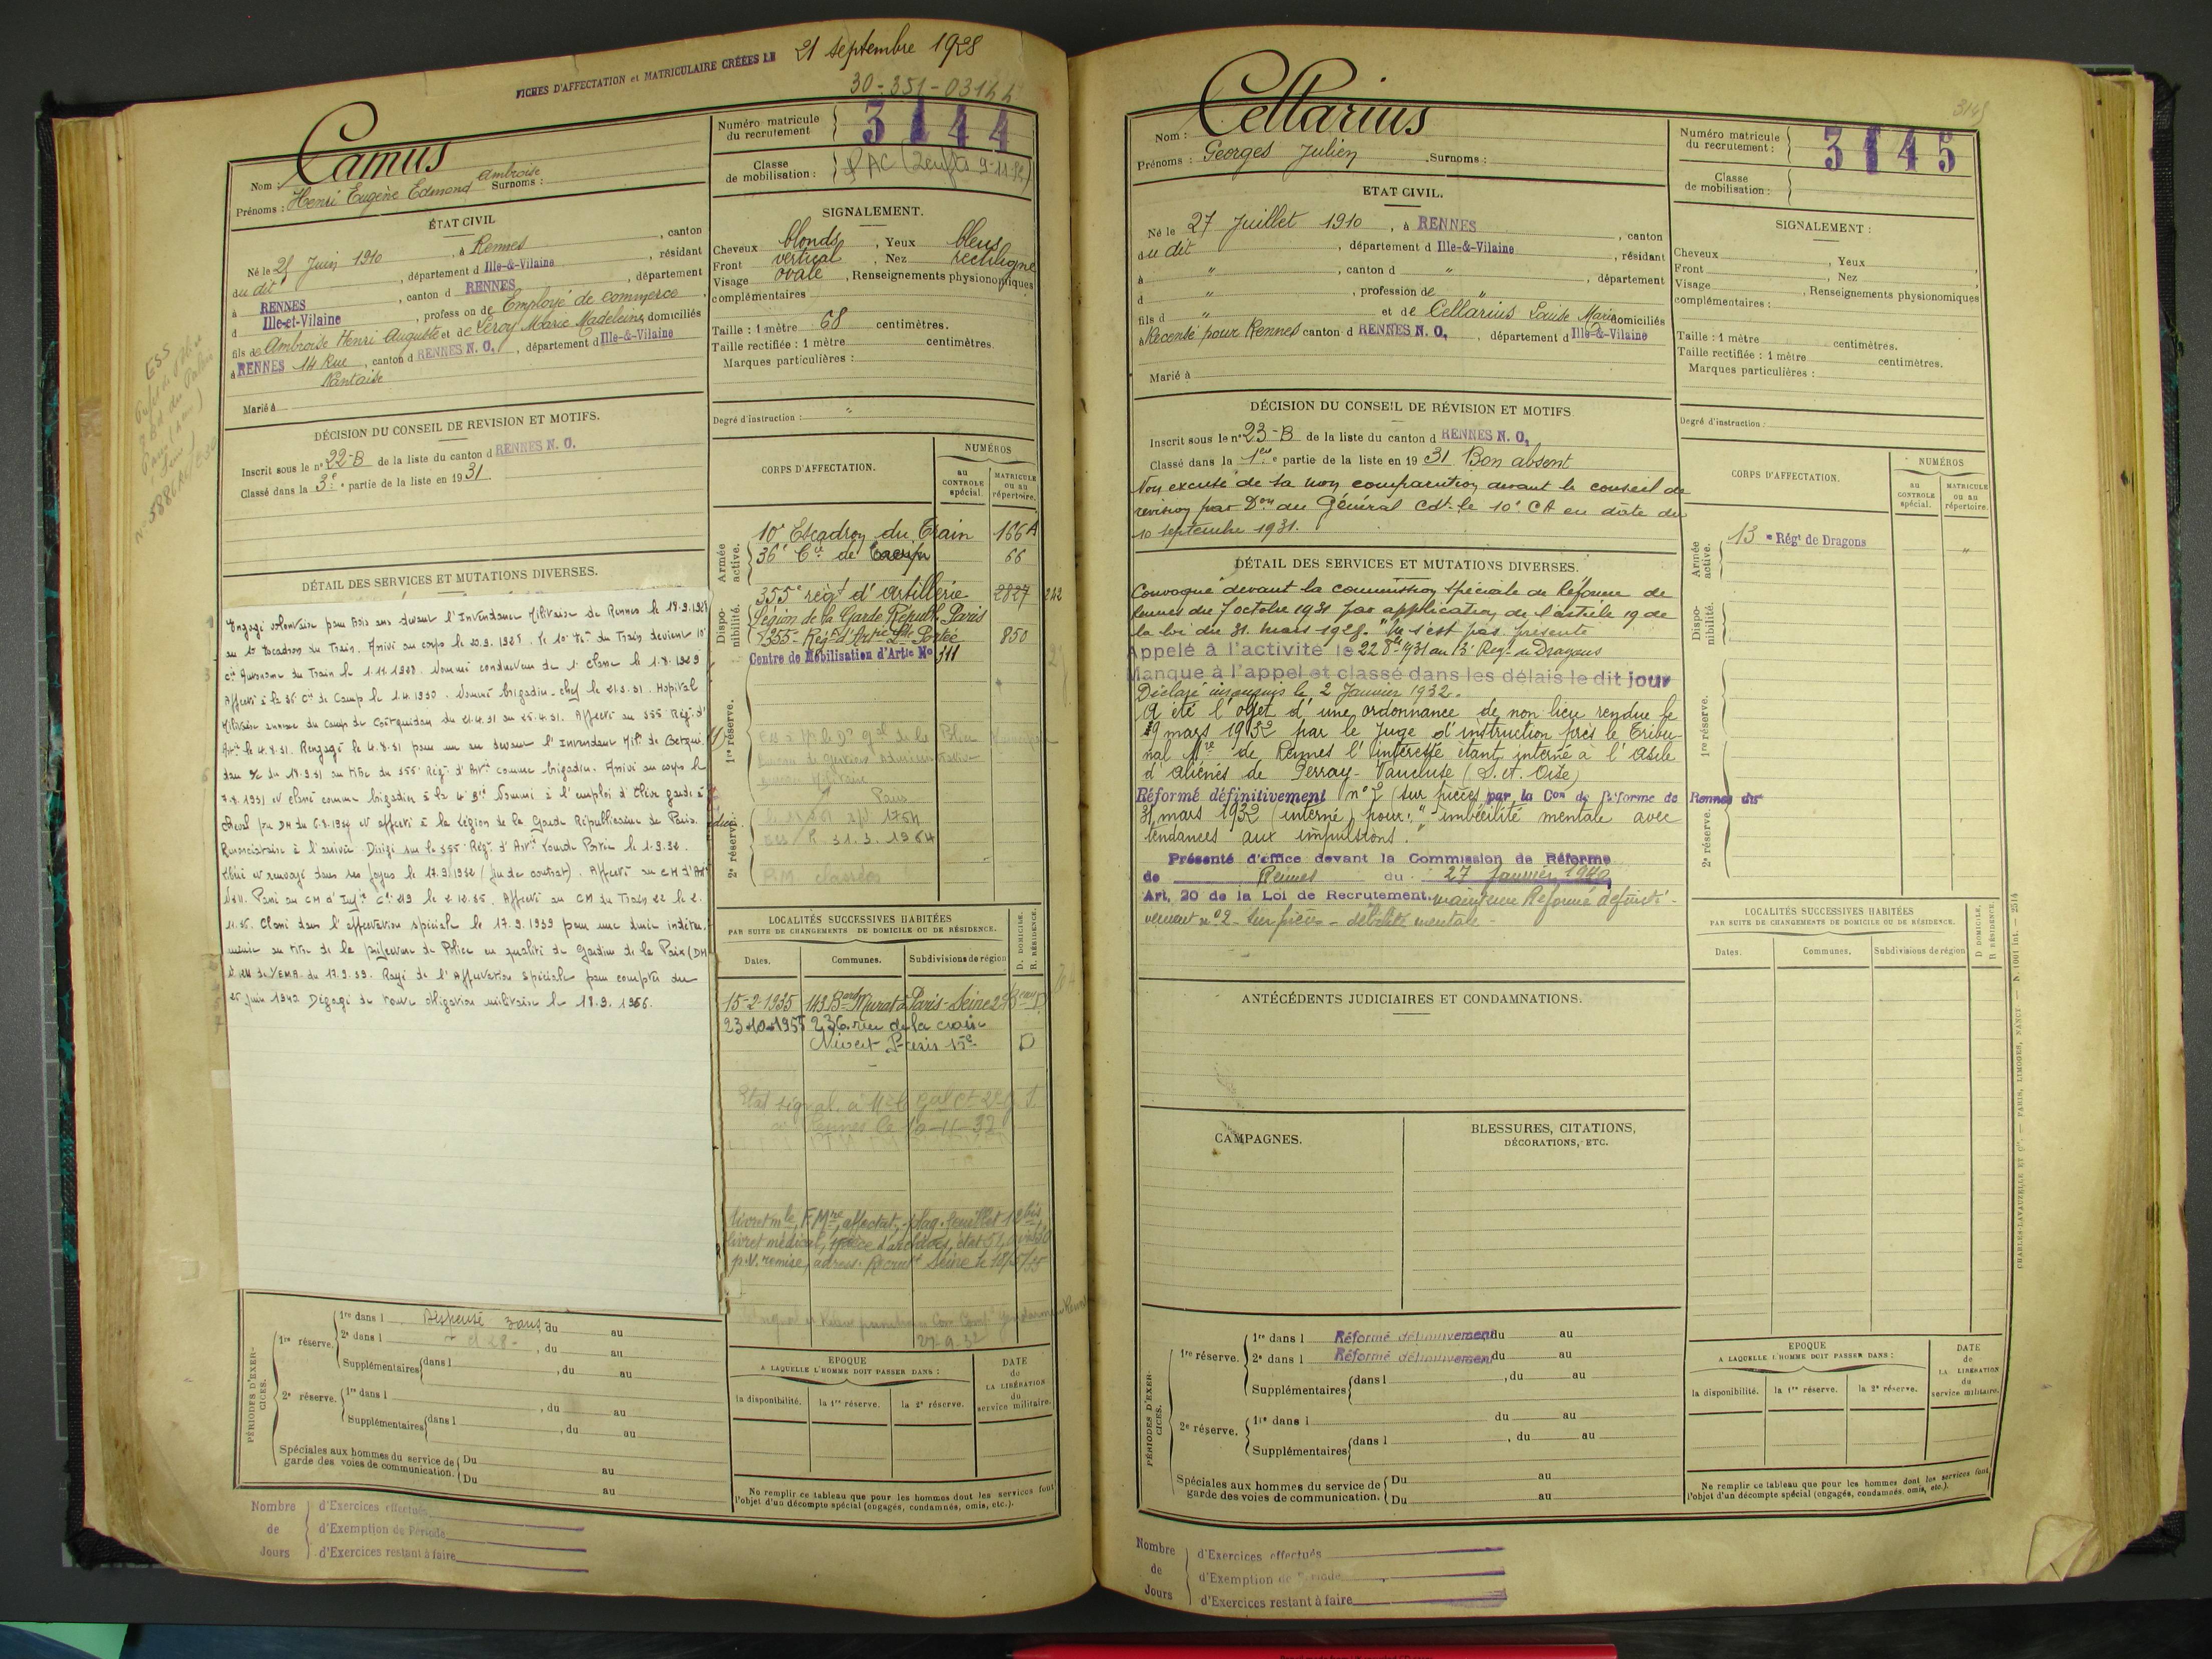 FICHES D'AFFECTATION et MATRICULAIRE CRÉÉES LE 21 septembre 1928
30-351-03144
Nom : Camus
Prénoms : Henri Eugène Edmond Ambroise Surnoms :
ÉTAT CIVIL
Né le 25 Juin 1910, à Rennes, canton
du dit, département d Ille-&-Vilaine, résidant
à RENNES, canton d RENNES, département
d Ille-et-Vilaine, profession de Employé de commerce,
fils de Ambroise Henri Auguste et de Leroy Marie Madeleine, domiciliés
à RENNES 14 Rue, canton d RENNES N. O., département d Ille-&-Vilaine
Nantaise
Marié à
DÉCISION DU CONSEIL DE REVISION ET MOTIFS.
Inscrit sous le n° 22-B de la liste du canton d RENNES N. O.
Classé dans la 3e partie de la liste en 1931
DÉTAIL DES SERVICES ET MUTATIONS DIVERSES.
Engagé volontaire pour trois ans devant l'Intendance Militaire de Rennes le 18.9.1928
au 10 Escadron du Train. Arrivé au corps le 20.9.1928. Le 10e Ron du Train devient 10e
Cie Autonome du Train le 1.11.1928. Nommé conducteur de 1. classe le 1.8.1929
Affecté à la 36 Cie de Camp le 1.4.1930. Nommé brigadier-chef le 21.3.31. Hopital
Militaire annexe du camp de Coëtquidan du 21.4.31 au 25.4.31. Affecté au 355 Rég. d'
Artie le 4.8.31. Rengagé le 4.8.31 pour un an devant l'Intendant Mil. de
du 18.9.31 au titre du 355 Rég. d'Artie comme brigadier. Arrivé au corps le
7.8.1931 et classé comme brigadier à la 4e Bie Nommé à l'emploi d'élève garde à
cheval par DM du 6.8.1932 et affecté à la Légion de la Garde Républicaine de Paris.
Renonciataire à l'arrivée. Dirigé sur le 355 Rég. d'Artie Lourde Portée le 1.9.32.
Libéré et renvoyé dans ses foyers le 17.9.1932 (fin de contrat). Affecté au CM d'Artie
N°311. Passé au CM d'Infie Cie 219 le 2.12.35. Affecté au CM du Train 22 le 2.
11.36. Classé dans l'affectation spéciale le 17.9.1939 pour une durée indéter-
minée au titre de la préfecture de Police en qualité de Gardien de la Paix (DM
de l'EMA. du 17.9.39. Rayé de l'Affectation spéciale pour compter du
25 juin 1940 Dégagé de toute obligation militaire le 18.9.1956.
PÉRIODES D'EXERCICES.
1re réserve.
1re dans l Dispensé 3 ans, du au
2e dans l et 28-, du au
Supplémentaires dans l, du au
2e réserve.
1re dans l, du au
Supplémentaires dans l, du au
Spéciales aux hommes du service de garde des voies de communication.
Du au
Du au
Nombre de Jours
d'Exercices effectués
d'Exemption de Période
d'Exercices restant à faire
Numéro matricule du recrutement 3144
Classe de mobilisation :
SIGNALEMENT.
Cheveux blonds, Yeux bleus
Front vertical, Nez rectiligne
Visage ovale, Renseignements physionomiques
complémentaires
Taille : 1 mètre 68 centimètres.
Taille rectifiée : 1 mètre centimètres.
Marques particulières :
Degré d'instruction : "
CORPS D'AFFECTATION.
NUMÉROS
au CONTROLE spécial.
MATRICULE ou au répertoire.
Armée active.
10e Escadron du Train 166A
36e Cie de Camp 66
355e régt d'artillerie 2827 242
Disponibilité.
Légion de la Garde Républ. Paris
355e Régt d'Artie Lde Portée 850
Centre de Mobilisation d'Artie No 311
1re réserve.
Paris
2e réserve.
31.3.1964
P.M. classées
LOCALITÉS SUCCESSIVES HABITÉES
PAR SUITE DE CHANGEMENTS DE DOMICILE OU DE RÉSIDENCE.
Dates. Communes. Subdivisions de région D. DOMICILE. R. RÉSIDENCE.
15-2-1935 149 Bard Murat à Paris - Seine 2e Beau D
23-10-1955 236 rue de la croix
Nivert Paris 15e D
Rennes le 10-11-32
livret mle, F. Mre, affectat., plaq. feuillet 12 bis
livret médical, pièce d'archives, état 51,
p.V. remise, adress. Recrut Seine le 18/5/35
27-9-32
EPOQUE
A LAQUELLE L'HOMME DOIT PASSER DANS :
la disponibilité. la 1re réserve. la 2e réserve.
DATE de LA LIBÉRATION du service militaire.
Ne remplir ce tableau que pour les hommes dont les services font
l'objet d'un décompte spécial (engagés, condamnés, omis, etc.).
3145
Nom : Cellarius
Prénoms : Georges Julien Surnoms :
ETAT CIVIL.
Né le 27 Juillet 1910, à RENNES, canton
du dit, département d Ille-&-Vilaine, résidant
à ", canton d ", département
d ", profession de "
fils d " et de Cellarius Louise Marie domiciliés
à Recensé pour Rennes canton d RENNES N. O., département d Ille-&-Vilaine
Marié à
DÉCISION DU CONSEIL DE RÉVISION ET MOTIFS
Inscrit sous le n° 23-B de la liste du canton d RENNES N. O.
Classé dans la 1ere partie de la liste en 1931 Bon absent
Non excusé de sa non comparution devant le conseil de
revision par Don du Général Cdt le 10e CA en date du
10 septembre 1931.
DÉTAIL DES SERVICES ET MUTATIONS DIVERSES.
Convoqué devant la commission spéciale de Réforme de
Rennes du 7 octobre 1931 par application de l'article 19 de
la loi du 31. mars 1928. "Ne s'est pas présenté
Appelé à l'activité le 22 8bre 1931 au 13e Régt de Dragons
Manque à l'appel et classé dans les délais le dit jour
Déclaré insoumis le 2 Janvier 1932.
A été l'objet d'une ordonnance de non lieu rendue le
19 mars 1932 par le Juge d'instruction près le Tribu-
nal Mre de Rennes l'intéressé étant interné à l'asile
d'aliénés de Perray-Vaucluse (S. et. Oise)
Réformé définitivement n°2 (sur pièces par la Con de Réforme de Rennes du
31 mars 1932 (interné) pour : "imbécilité mentale avec
tendances aux impulsions."
Présenté d'office devant la Commission de Réforme
de Rennes du 27 Janvier 1940
Art. 20 de la Loi de Recrutement. maintenu Réformé définiti-
vement n°2 - Sur pièces - débilité mentale -
ANTÉCÉDENTS JUDICIAIRES ET CONDAMNATIONS.
CAMPAGNES.
BLESSURES, CITATIONS,
DÉCORATIONS, ETC.
PÉRIODES D'EXERCICES.
1re réserve.
1re dans l Réformé définitivement du au
2e dans l Réformé définitivement du au
Supplémentaires dans l, du au
2e réserve.
1re dans l du au
Supplémentaires dans l, du au
Spéciales aux hommes du service de garde des voies de communication.
Du au
Du au
Nombre de Jours
d'Exercices effectués
d'Exemption de Période
d'Exercices restant à faire
Numéro matricule du recrutement : 3145
Classe de mobilisation :
SIGNALEMENT :
Cheveux, Yeux
Front, Nez
Visage, Renseignements physionomiques
complémentaires :
Taille : 1 mètre centimètres.
Taille rectifiée : 1 mètre centimètres.
Marques particulières :
Degré d'instruction :
CORPS D'AFFECTATION.
NUMÉROS
au CONTROLE spécial.
MATRICULE ou au répertoire.
Armée active.
13e Régt de Dragons "
Disponibilité.
1re réserve.
2e réserve.
LOCALITÉS SUCCESSIVES HABITÉES
PAR SUITE DE CHANGEMENTS DE DOMICILE OU DE RÉSIDENCE.
Dates. Communes. Subdivisions de région D DOMICILE. R RÉSIDENCE.
EPOQUE
A LAQUELLE L'HOMME DOIT PASSER DANS :
la disponibilité. la 1re réserve. la 2e réserve.
DATE de LA LIBÉRATION du service militaire.
Ne remplir ce tableau que pour les hommes dont les services font
l'objet d'un décompte spécial (engagés, condamnés, omis, etc.).
CHARLES-LAVAUZELLE ET Cie. — PARIS, LIMOGES, NANCY — N. 1001 int. — 2514